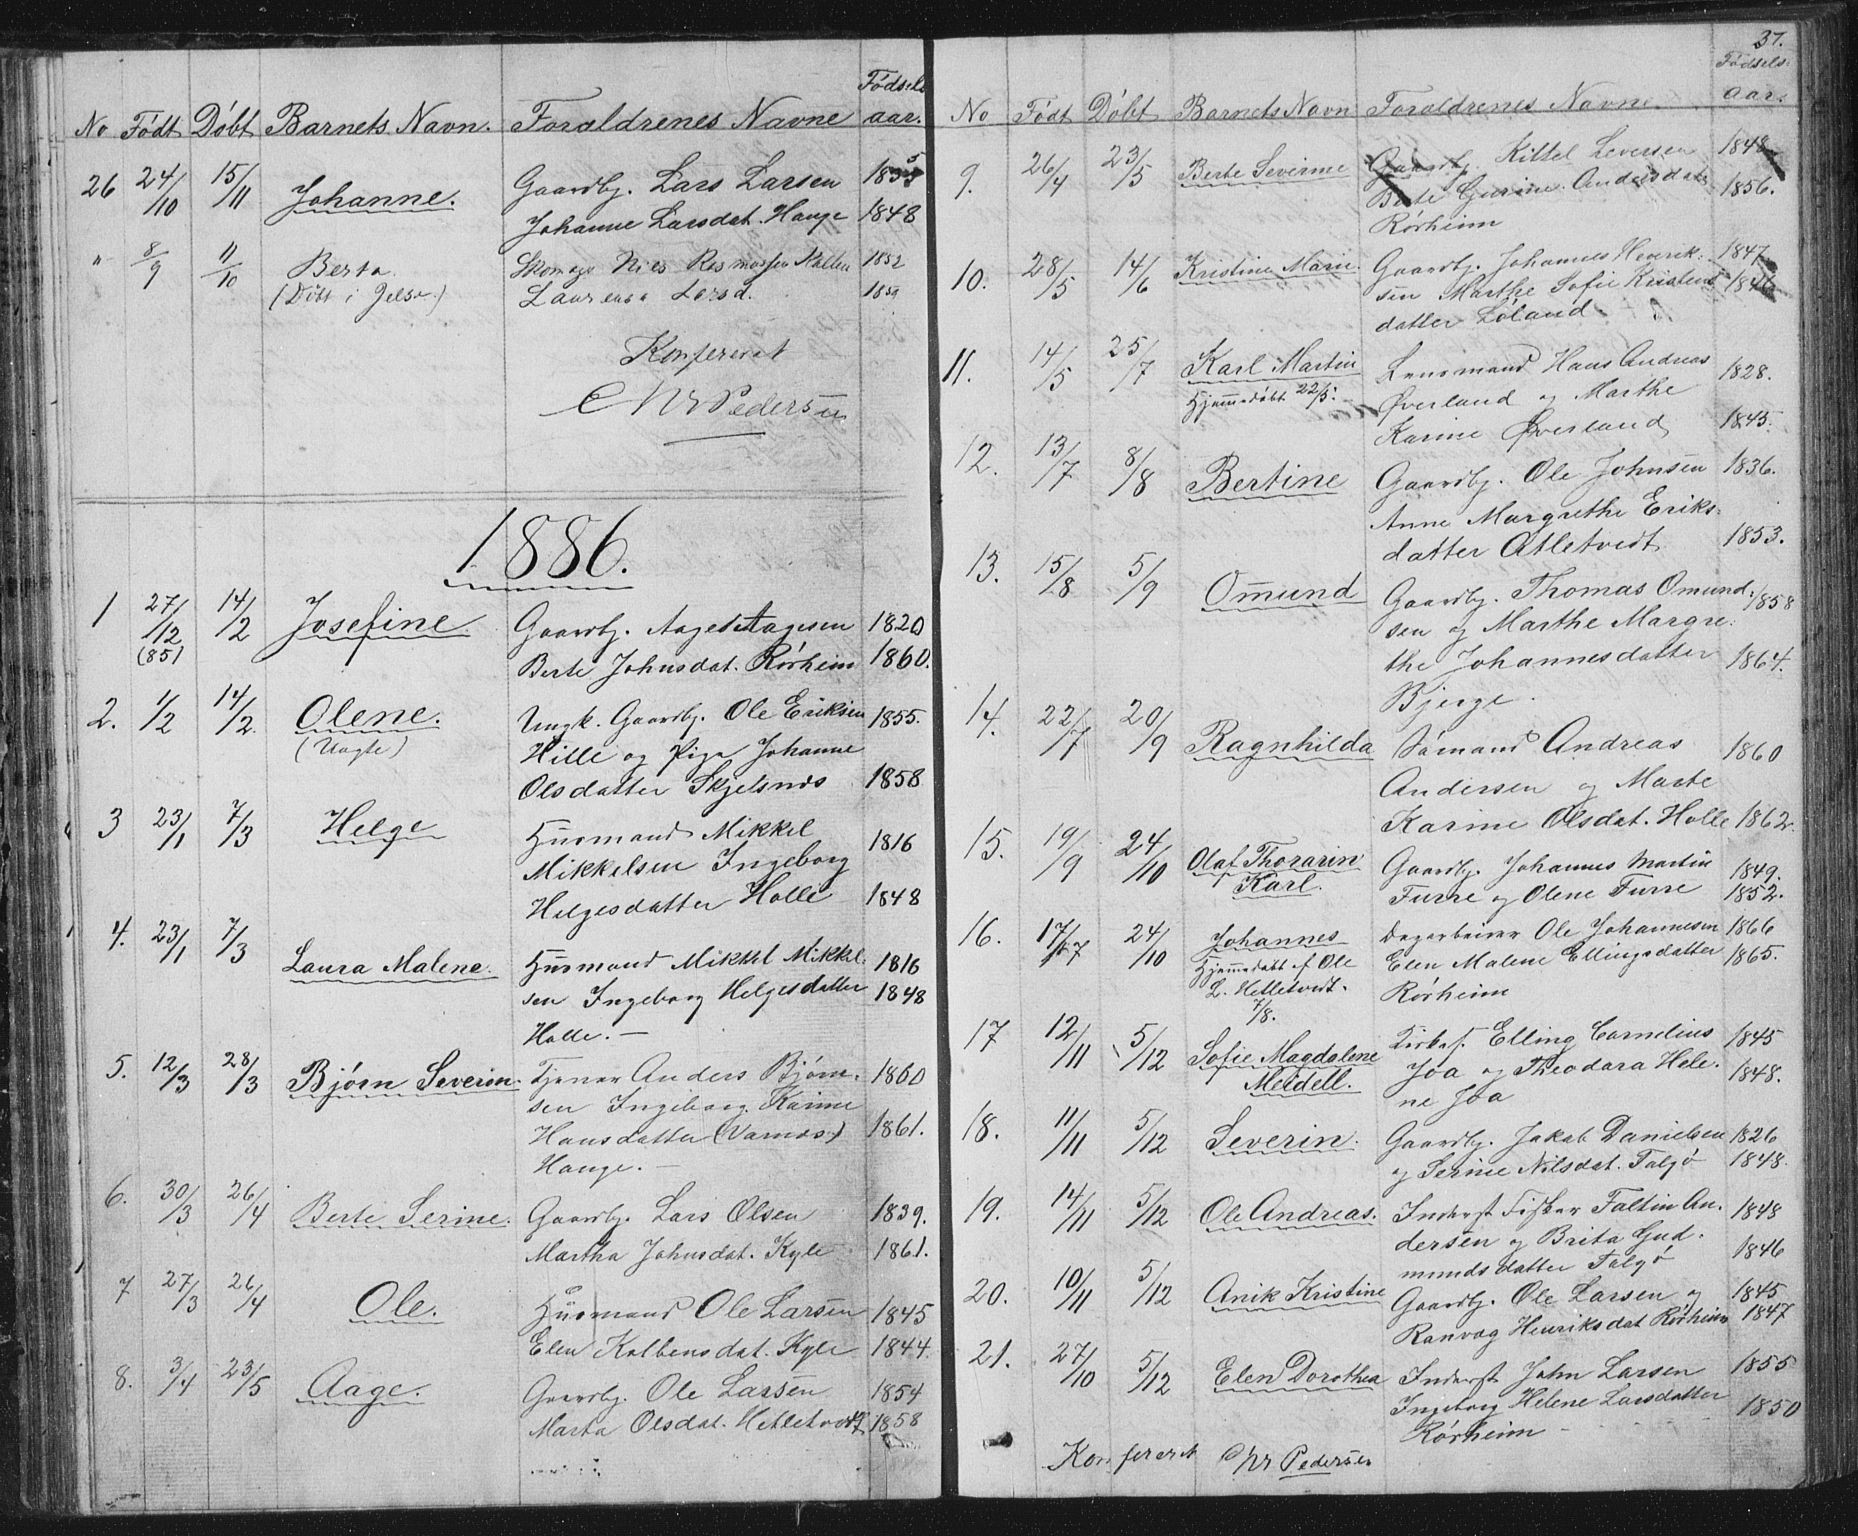 No Født Døbt Barnets Navn. Forældrenes Navne Fødsels aar.
26 24/10 15/11 Johanne. Gaardbr. Lars Larsen
Johanne Larsdat. Hauge 1848
" 8/9 11/10 Berta. Skomager Nils Rasmussen 1852
(Døbt i Jelse.) Laurensa Larsd. 1859
Konfereret
Pedersen
1886.
1 27/12 (85) 14/2 Josefine Gaardbr. Aage Aagesen 1820
Berte Johnsdat. Rørheim 1860.
2. 1/2 14/2. Olene. Ungk. Gaardbr. Ole Eriksen 1855.
(Uægte) Hille og Pige Johanne
Olsdatter Skjelsnes 1858
3 23/1 7/3 Helge Husmand Mikkel 1816
Mikkelsen Ingeborg
Helgesdatter Holle 1848
4. 23/1 7/3 Laura Malene. Husmand Mikkel Mikkel- 1816
sen Ingeborg Helgesdatter 1848
Holle. —
5. 12/3 28/3 Bjørn Severin. Tjener Anders Bjørn- 1860
sen Ingeborg Karine
Hansdatter (Vamøs) 1861.
Hauge. —
6. 30/3 26/4 Berte Serine. Gaardbr. Lars Olsen 1839.
Martha Johnsdat. Kyle 1861.
7 27/3 26/4 Ole. Husmand Ole Larsen 1845
Elen Kolbensdat. Kyle 1844.
8. 3/4 23/5 Aage. Gaardbr. Ole Larsen 1854
Marta Olsdat. Hetletvedt 1858
37.
No Født Døbt Barnets Navn Forældrenes Navne. Fødsels aar.
9. 26/4 23/5 Berte Severine Gaardbr. Kittel Seversen 1848
Berte Gurine Andersdat. 1856.
Rørheim
10. 28/5 14/6 Kristine Marie. Gaardbr. Johannes Henrik- 1847
sen Marthe Sofie Kristens
datter Løland.
11. 14/5 25/7 Karl Martin Lensmand Hans Andreas 1828.
Hjemmedøbt 22/5. Øverland og Marthe
Karine Øverland 1845.
12. 13/7 8/8 Bertine Gaardbr. Ole Johnsen 1836.
Anne Margrethe Eriks-
datter Atletvedt 1853.
13. 15/8 5/9 Omund Gaardbr. Thomas Omund- 1858
sen og Marthe Margre-
the Johannesdatter 1864.
Bjerge.
14. 22/7 20/9 Ragnhilda Sømand Andreas 1860
Andersen og Marte
Karine Olsdat. Holle 1862.
15. 19/9 24/10 Olaf Thorarin Gaardbr. Johannes Martin 1849.
Karl. Furre og Olene Furre 1852.
16. 17/7 24/10 Johannes Dagarbeider Ole Johannesen 1866
Hjemmedøbt af Ole Elen Malene Ellingsdatter 1865.
L. Hetletvedt. Rørheim
7/8.
17 12/11 5/12 Sofie Magdalene Kirkes. Elling Cornelius 1845
Meidell. Joa og Theodora Hele- 1848.
ne Joa
18. 11/11 5/12 Severin. Gaardbr. Jakob Danielsen 1826
og Serine Nilsdat. Talgø 1848.
19. 14/11 5/12 Ole Andreas. Inderst Fisker Faltin An- 1848
dersen og Brita Gud-
mundsdatter Talgø 1846
20. 10/11 5/12 Anik Kristine Gaardbr. Ole Larsen og 1845
Ranvøg Henriksdat Rørheim 1847
21. 27/10 5/12 Elen Dorothea Inderst John Larsen 1855
Ingeborg Helene Larsdatter 1850
Rørheim —
Konfereret Chr Pedersen